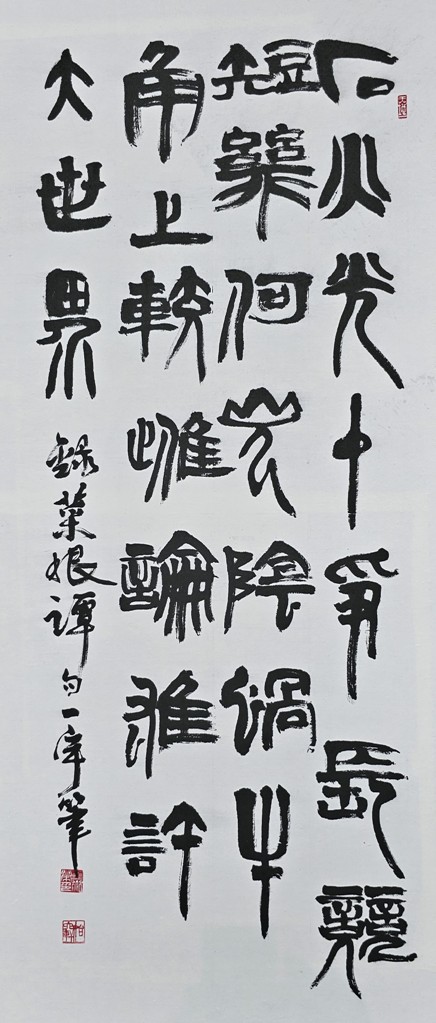 石火光中爭長競
短幾何光陰蝸牛
角上較雌論雄許
大世界
錄菜根譚句一筆